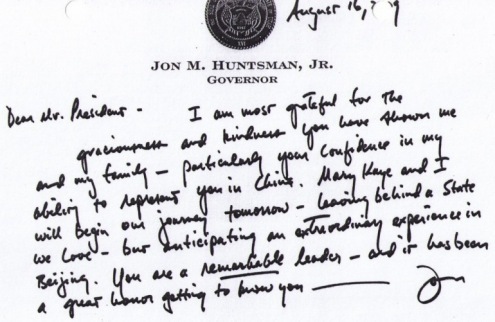 August 16, 9
JON M. HUNTSMAN, JR.
GOVERNOR
Dear Mr. President - I am most grateful for the
graciousness and kindness you have shown me
and my family - particularly your confidence in my
ability to represent you in China. Mary Kaye and I
will begin our journey tomorrow - leaving behind a State
we love - but anticipating an extraordinary experience in
Beijing. You are a remarkable leader - and it has been
a great honor getting to know you — Jon